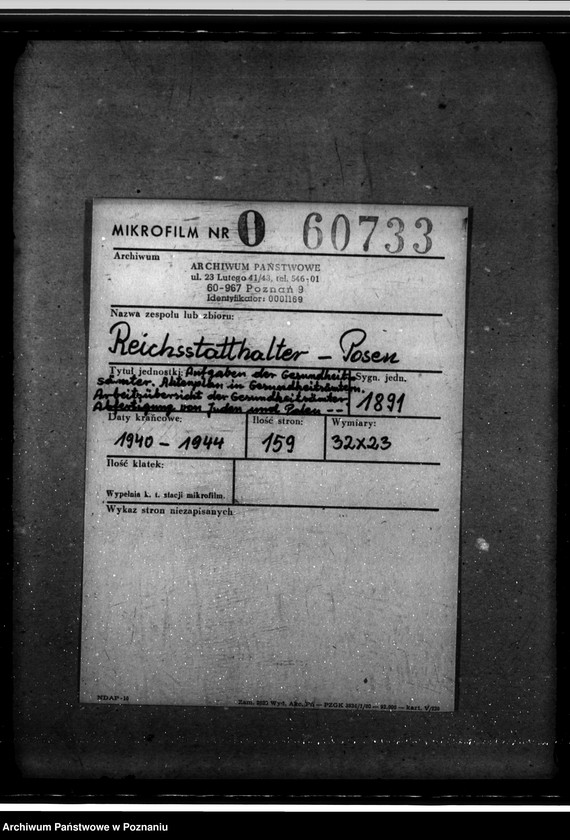 MIKROFILM NR O 60733
Archiwum
ARCHIWUM PAŃSTWOWE
ul. 23 Lutego 41/43, tel. 546-01
60-967 Poznań 9
Identyfikator: 0001169
Nazwa zespołu lub zbioru:
Reichsstatthalter - Posen
Tytuł jednostki: Aufgaben der Gesundheits-
sämter. Aktenplan in Gesundheitsämtern.
Arbeitsübersicht der Gesundheitsämter
Abfertigung von Juden und Polen --
Sygn. jedn.
1891
Daty krańcowe:
1940 - 1944
Ilość stron:
159
Wymiary:
32x23
Ilość klatek:
Wypełnia k. t. stacji mikrofilm.
Wykaz stron niezapisanych
NDAP-16
Zam. Wyd. Akc. Pń — PZGK kart. V/220
Archiwum Państwowe w Poznaniu